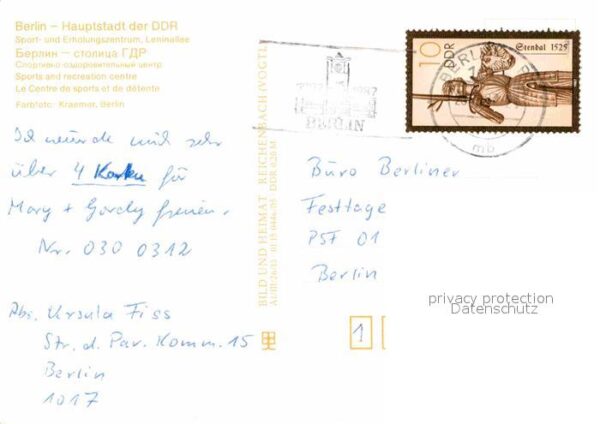 Berlin – Hauptstadt der DDR
Sport- und Erholungszentrum, Leninallee
Берлин – столица ГДР
Спортивно-оздоровительный центр
Sports and recreation centre
Le Centre de sports et de détente
Farbfoto: Kraemer, Berlin
Ich würde mich sehr
über 4 Karten für
Mary + Gordy freuen.
Nr. 030 0312
Abs. Ursula Fiss
Str. d. Par. Komm. 15
Berlin
1017
BILD UND HEIMAT REICHENBACH (VOGTL
DDR 0,20 M
1987
BERLIN
10
DDR
Stendal 1525
BERLIN
mb
Büro Berliner
Festtage
PSF 01
Berlin
1
privacy protection
Datenschutz